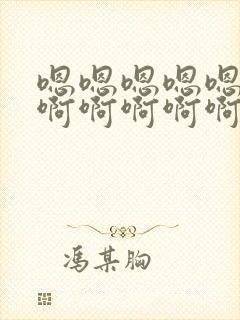 嗯嗯嗯嗯嗯
啊啊啊啊啊
冯某胸